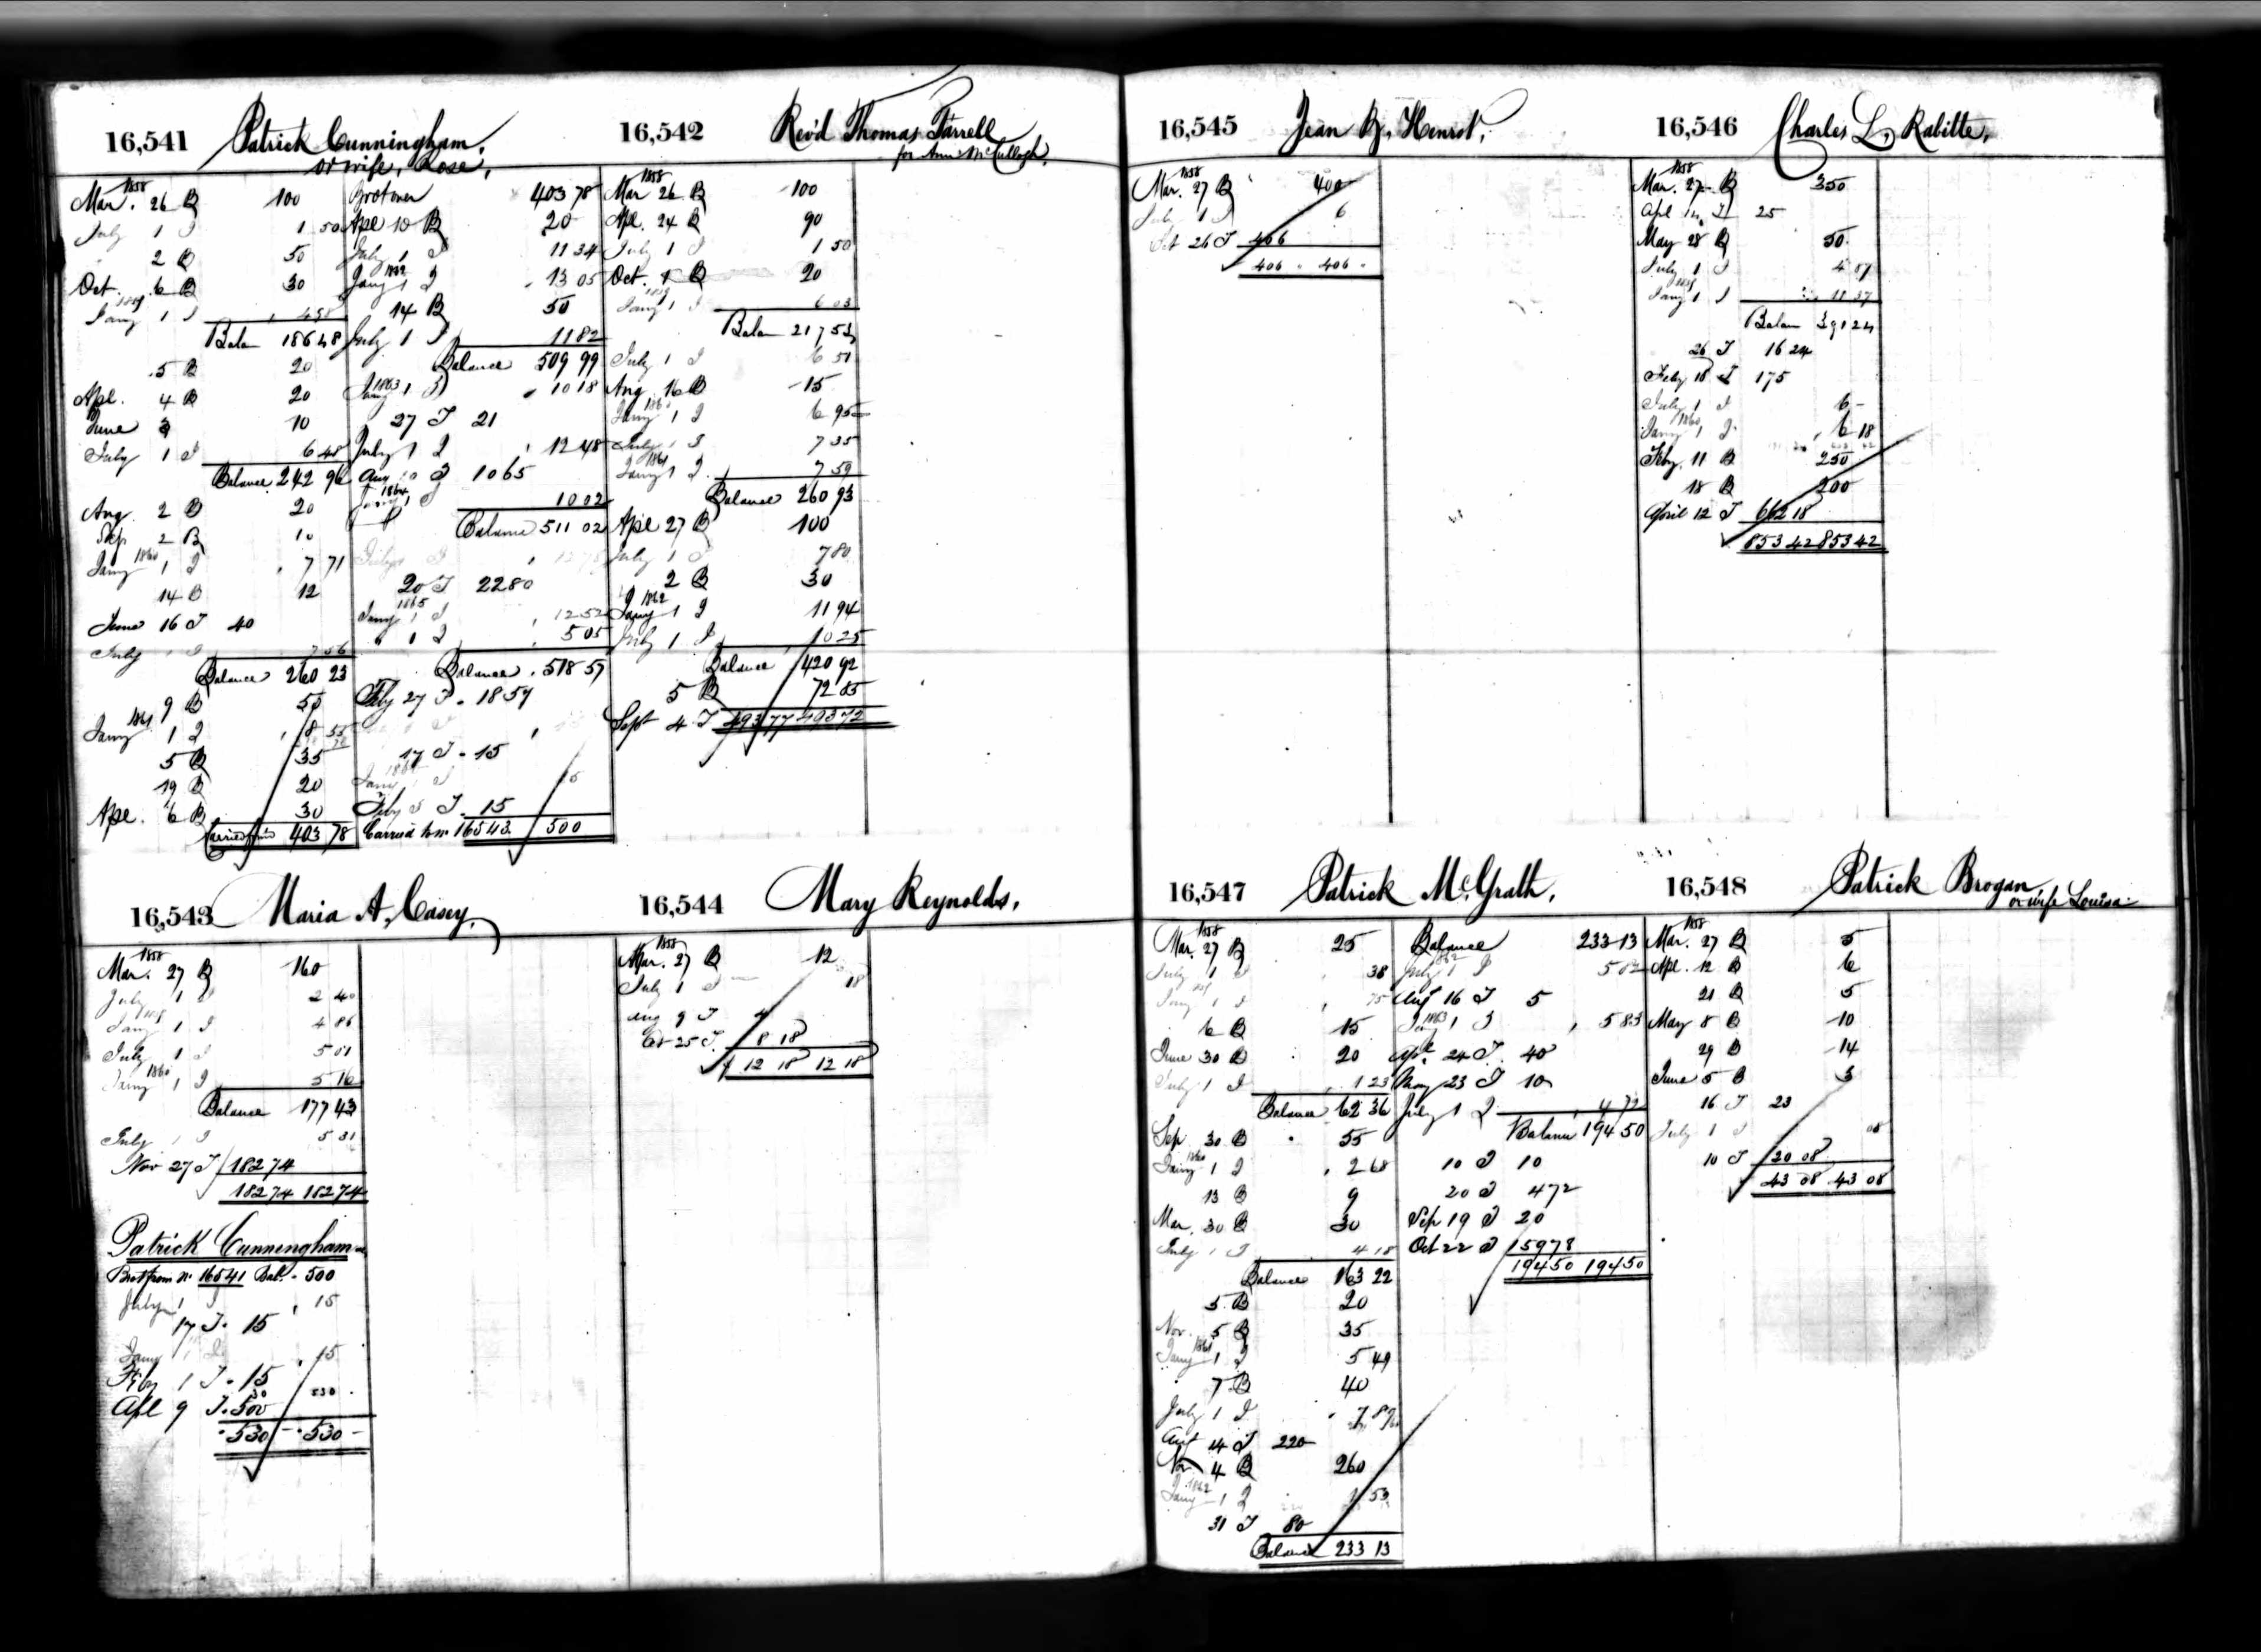 16,541 Patrick Cunningham,
or wife, Rose,
1858
Mar. 26 B 100
July 1 I 1 50
2 B 50
Oct. 6 B 30
1859
Jany 1 I 4 98
Balan 186 48
5 B 20
Apl. 4 B 20
June 3 10
July 1 I 6 48
Balance 242 96
Aug. 2 B 20
Sep 2 B 10
1860
Jany 1 I 7 71
14 B 12
June 16 T 40
July 1 I 7 56
Balance 260 23
9 B 50
1861
Jany 1 I 8 55
5 B 35
19 B 20
Apl. 6 B 30
Carried 403 78
Brot over 403 78
Apl 10 B 20
July 1 I 11 34
1862
Jany 1 I 13 05
14 B 50
July 1 I 11 82
Balance 509 99
1863
Jany 1 I 10 18
27 T 21
July 1 I 12 48
Aug 10 T 10 65
1864
Jany 1 I 10 02
Balance 511 02
July 1 I 12 78
20 T 22 80
1865
Jany 1 I 12 52
1 I 5 05
Balance 518 57
Feby 27 T 18 57
17 T 15
Jany 1 I 15
Feby 5 T 15
Carried to No 16543 500
16,542 Rev'd Thomas Farrell
for Ann McCullogh.
1858
Mar 26 B 100
Apl. 24 B 90
July 1 I 1 50
Oct. 1 B 20
1859
Jany 1 I 6 03
Balan 217 53
July 1 I 6 51
Aug 16 B 15
1860
Jany 1 I 6 95
July 1 I 7 35
1861
Jany 1 I 7 59
Balance 260 93
Apl 27 B 100
July 1 I 7 80
2 B 30
1862
Jany 1 I 11 94
July 1 I 10 25
Balance 420 92
5 B 72 85
Sept 4 T 493 77 493 77
16,543 Maria A. Casey,
1858
Mar. 27 B 160
July 1 I 2 40
1859
Jany 1 I 4 86
July 1 I 5 01
1860
Jany 1 I 5 16
Balance 177 43
July 1 I 5 31
Nov 27 T 182 74
182 74 182 74
Patrick Cunningham
Brot from No 16541 Bal. 500
July 1 I 15
17 T 15
Jany 1 I 15
Feby 1 T 15
Apl 9 T 500
530 530
16,544 Mary Reynolds,
1858
Mar. 27 B 12
July 1 I 18
Aug 9 T 4
Oct 25 T 8 18
12 18 12 18
16,545 Jean B. Henrot,
1858
Mar. 27 B 400
July 1 I 6
Oct 26 T 406
406 406
16,546 Charles L. Rabitte,
1858
Mar. 27 B 350
Apl 14 T 25
May 28 B 50
July 1 I 4 87
1859
Jany 1 I 11 37
Balan 391 24
26 T 16 24
Feby 18 T 175
July 1 I 6
1860
Jany 1 I 6 18
Feby. 11 B 250
18 B 200
April 12 T 662 18
853 42 853 42
16,547 Patrick McGrath,
1858
Mar. 27 B 25
July 1 I 38
1859
Jany 1 I 75
6 B 15
June 30 B 20
July 1 I 1 23
Balance 62 36
Sep 30 B 55
1860
Jany 1 I 2 68
13 B 9
Mar. 30 B 30
July 1 I 4 18
Balance 163 22
5 B 20
Nov. 5 B 35
1861
Jany 1 I 5 49
7 B 40
July 1 I 7 89
Aug 14 T 220
Nov 4 B 260
1862
Jany 1 I 1 53
31 T 80
Balance 233 13
Balance 233 13
1862
July 1 I 5 82
Aug 16 T 5
1863
Jany 1 I 5 83
Apl 24 T 40
May 23 T 10
July 1 I 4 72
Balance 194 50
10 T 10
20 T 4 72
Sep 19 T 20
Oct 22 T 159 78
194 50 194 50
16,548 Patrick Brogan
or wife Louisa
1858
Mar. 27 B 5
Apl. 12 B 6
21 B 5
May 8 B 10
29 B 14
June 5 B 3
16 T 23
July 1 I 08
10 T 20 08
43 08 43 08